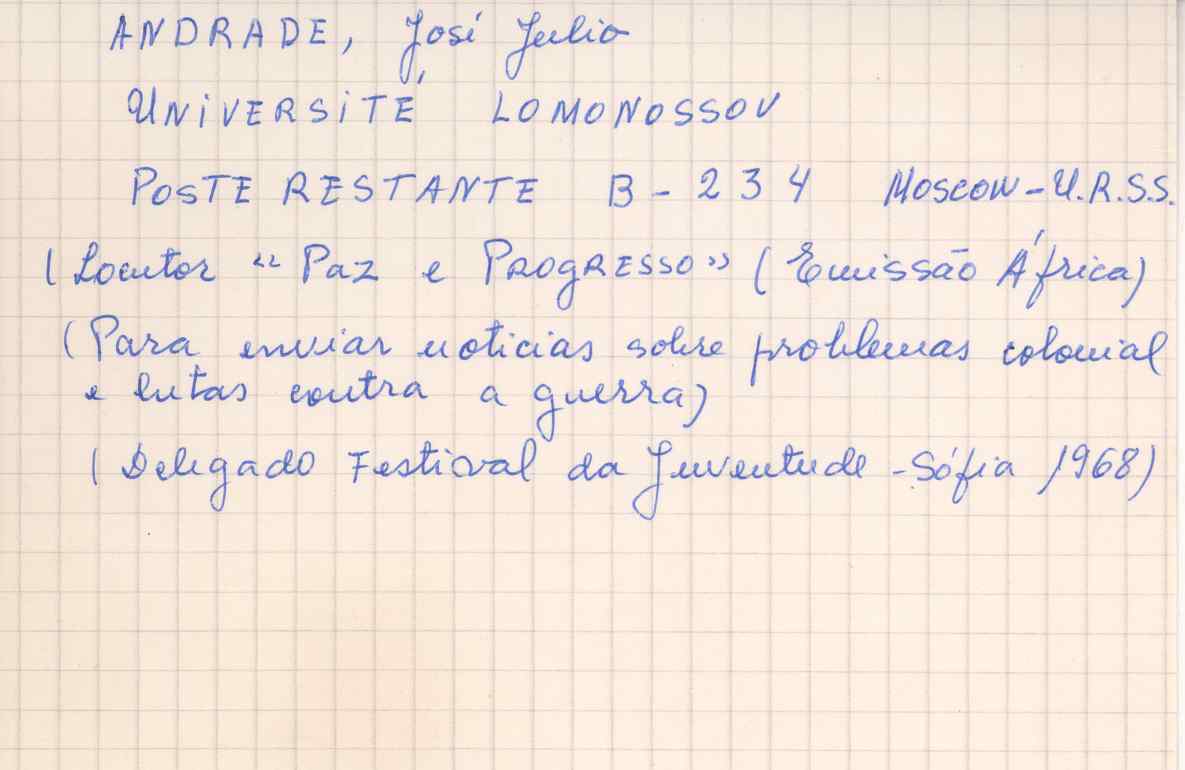 ANDRADE, José Julio
UNIVERSITÉ LOMONOSSOV
POSTE RESTANTE B - 234 MOSCOW - U.R.S.S.
(Locutor "Paz e PROGRESSO" (Emissão África)
(Para enviar noticias sobre problemas colonial
e lutas contra a guerra)
(Delegado Festival da Juventude - Sófia 1968)